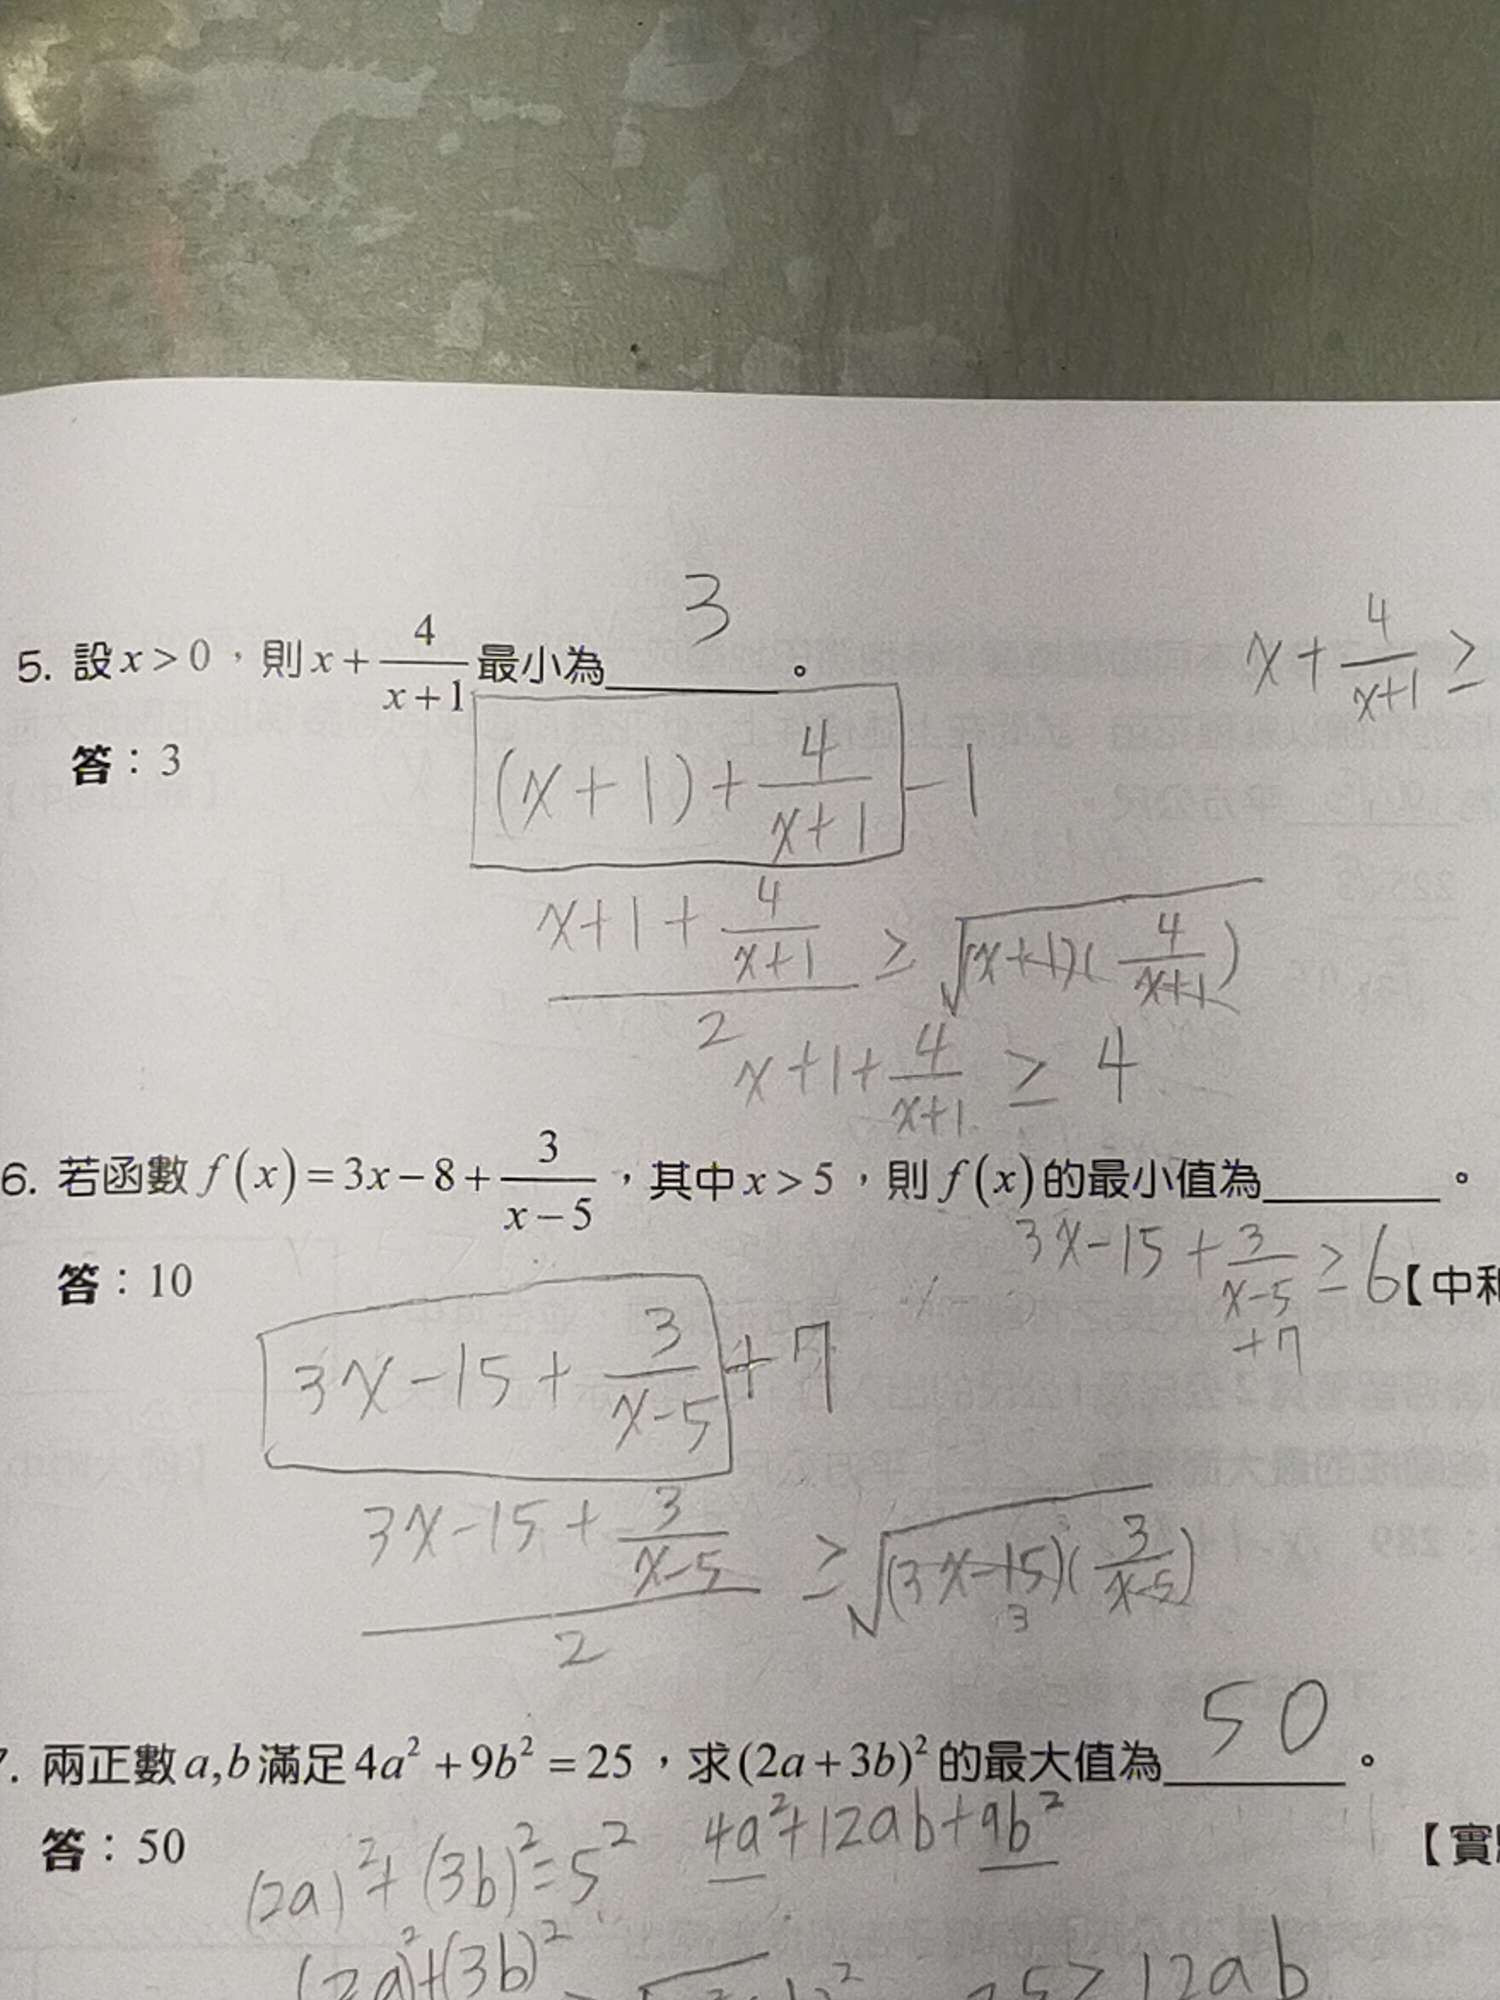 3
5. 設 x > 0，則 x + 4/(x+1) 最小為______。
x + 4/(x+1) ≥
答：3
(x+1) + 4/(x+1) - 1
(x+1 + 4/(x+1))/2 ≥ √((x+1)(4/(x+1)))
x+1+ 4/(x+1) ≥ 4
6. 若函數 f(x) = 3x - 8 + 3/(x-5)，其中 x > 5，則 f(x) 的最小值為______。
3x-15 + 3/(x-5) ≥ 6
+7
答：10
【中和
3x-15 + 3/(x-5) + 7
(3x-15 + 3/(x-5))/2 ≥ √((3x-15)(3/(x-5)))
3
50
7. 兩正數 a,b 滿足 4a² + 9b² = 25，求 (2a+3b)² 的最大值為______。
4a²+12ab+9b²
答：50
【實
(2a)²+(3b)²=5²
(2a)²+(3b)²
≥ 12ab